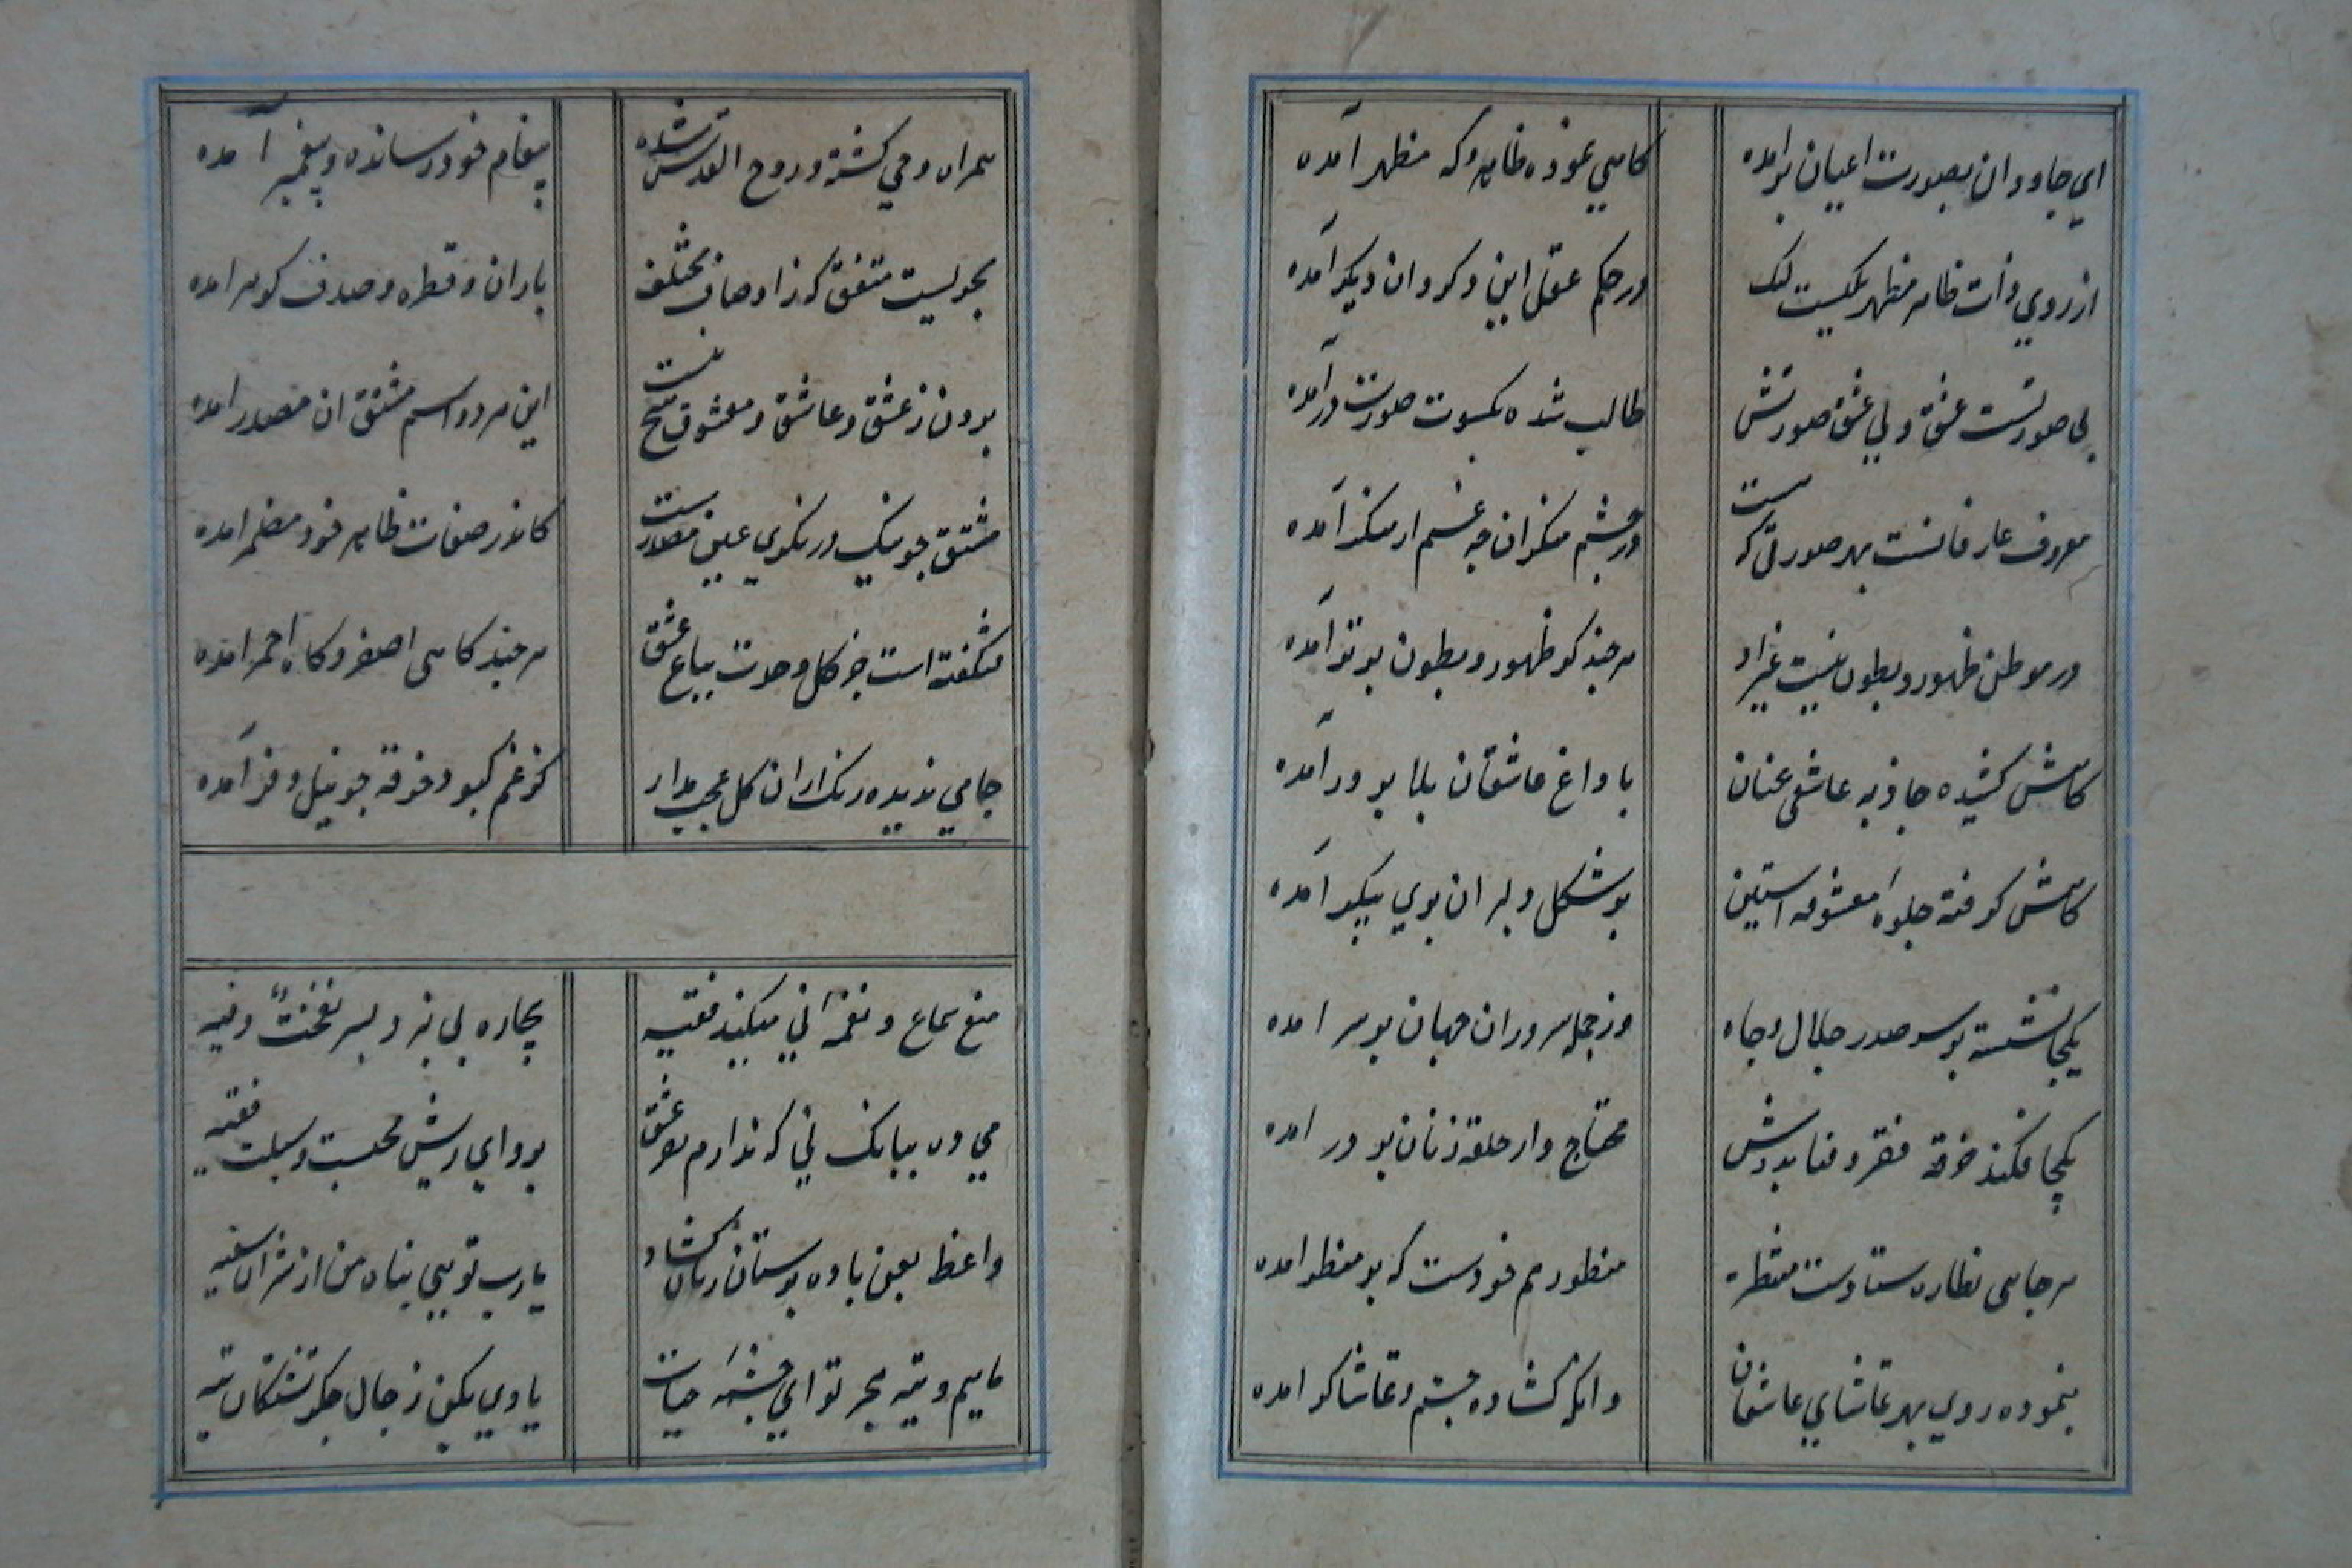 اي جاودان بصورت اعيان برآمده
كاهي نموده ظاهر وكه مظهر آمده
از روي ذات ظاهر مظهر يكيست ليك
در حكم عقل اين دكر وان ديكر آمده
بي صورتست عشق ولي عشق صورتش
طالب شده بكسوت صورت درآمده
معروف عارفانست بهر صورتي كه هست
در چشم منكران چه غم ار منكر آمده
در موطن ظهور و بطون نيست غير او
هر چند كز ظهور و بطون برتر آمده
كاهش كشيده جاذبه عاشقي عنان
با داغ عاشقان بلا پرور آمده
كاهش كرفته جلوه معشوقه استين
بر شكل دلبران پري پيكر آمده
يكجا نشسته بر سر صدر جلال و جاه
وز جمله سروران جهان بر سر امده
يكجا فكند خرقه فقر و فنا بدوش
محتاج وار حلقه زنان بر در امده
هر جا پي نظاره ستادست منتظر
منظور هم خودست كه بر منظر امده
بنموده روي بهر تماشاي عاشقان
وانكه كشاده چشم و تماشاكر امده
همراه وحي كشته و روح القدس شده
پيغام خود رسانده و پيغمبر آمده
بحريست متفق كه ز اوصاف مختلف
باران و قطره و صدف كوهر امده
بيرون ز عشق و عاشق و معشوق نيست هيچ
اين هر دو اسم مشتق ان مصدر امده
مشتق چو نيك درنكري عين مصدرست
كاندر صفات ظاهر خود مضمر امده
شكفته است جز كل وحدت بباغ عشق
هر چند كاهي اصفر و كاه احمر امده
جامي نديده رنك ازان كل عجب مدار
كز غم كبود خرقه چو نيلوفر آمده
منع سماع و نغمه ني ميكند فقيه
بيچاره پي نبرد بسر نفخت فيه
مي ده ببانك ني كه ندارم بعز عشق
پرواي ريش محتسب و سبلت فقيه
واعظ بعين باده پرستان زبان كشاد
يارب تويي پناه من از شر ان سفيه
ماييم و تيه هجر تو اي چشمه حيات
يادي بكن ز حال جكر تشنكان تيه